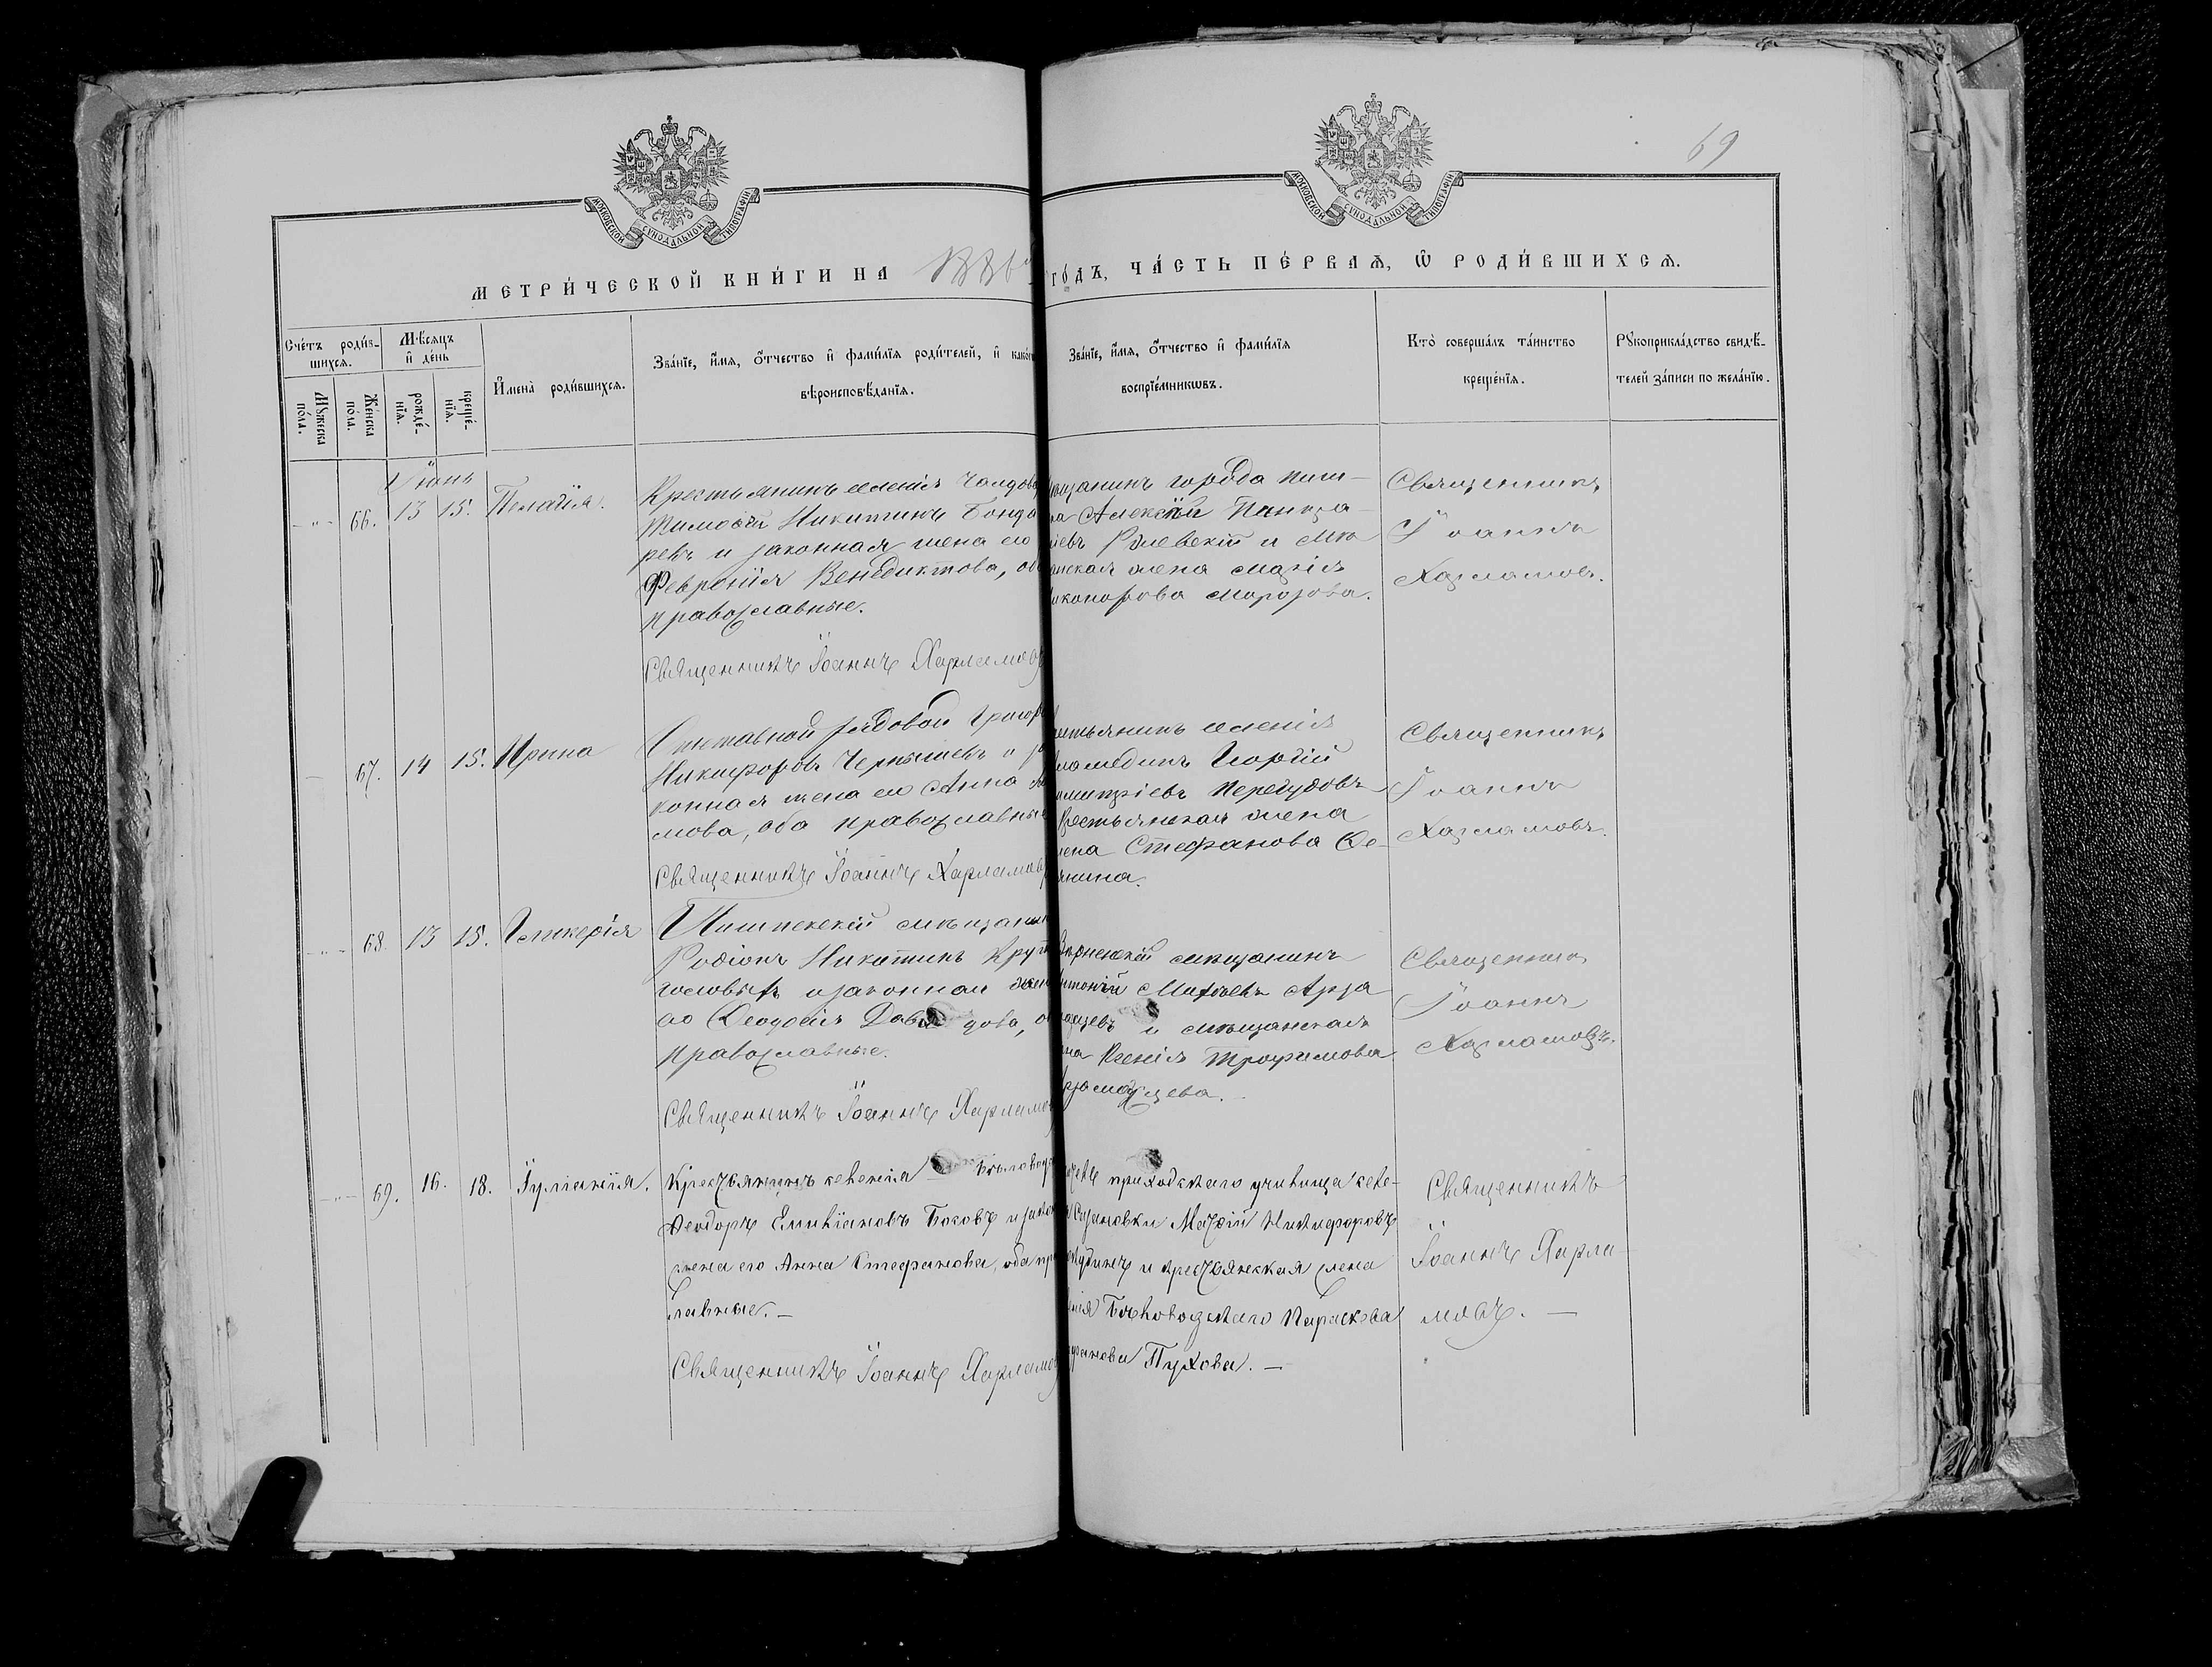 69
МОСКОВСКОЙ СѴНОДАЛЬНОЙ ТИПОГРАФІИ
МОСКОВСКОЙ СѴНОДАЛЬНОЙ ТИПОГРАФІИ
МЕТРИ́ЧЕСКОЙ КНИ́ГИ НА 1886й
ГО́ДЪ, ЧА́СТЬ ПЕ́РВАѦ, Ѡ҆ РОДИ́ВШИХСѦ.
Сче́тъ роди́в-
шихсѧ.
Мꙋ́жеска по́ла.
Же́нска по́ла.
Мѣ́сѧцъ
и҆ де́нь
рожде́-
нїѧ.
креще́-
нїѧ.
И҆мена̀ роди́вшихсѧ.
Зва́нїе, и҆́мѧ, ѻ҆́тчество и҆ фами́лїѧ роди́телей, и҆ како́гѡ
вѣроисповѣ́данїѧ.
Зва́нїе, и҆́мѧ, ѻ҆́тчество и҆ фами́лїѧ
воспрїе́мникѡвъ.
Кто̀ соверша́лъ та́инство
креще́нїѧ.
Рꙋкоприкла́дство свидѣ́-
телей за́писи по жела́нїю.
Іюнь
66. 13 15. Пелагія.
Крестьянинъ селенія Чалдовар
Тимофей Никитинъ Бонда
ревъ и законная жена его
Февронія Венедиктова, об
православные.
Священникъ Іоаннъ Харламовъ
щанинъ города Пиш-
Алексѣй
и Мѣ
анская жена Марія
иконорова Морозова.
Священникъ
Іоаннъ
Харламовъ.
67. 14 15. Ирина
рядовой Григор
Никифоровъ Чернышевъ и за
конная жена его Анна
мова, оба православные
Священникъ Іоаннъ Харламовъ
стьянинъ селенія
Георгій
митріевъ Перегудовъ
крестьянская жена
лена Стефанова Ѳе-
нина.
Священникъ
Іоаннъ
Харламовъ.
68. 13 15. Гликерія
Пишпекскій мѣщанин
Родіонъ Никитинъ Круг
головыхъ и законная жен
его Ѳеодосія Давыдова, о
православные.
Священникъ Іоаннъ Харламов
Вѣрненскій мѣщанинъ
нтоній Матѳѣевъ Арза
и мѣщанская
на Ксенія Трофимова
рзамасцева.
Священникъ
Іоаннъ
Харламовъ.
69. 16. 18. Іуліанія.
Крестьянинъ селенія Бѣловодс
Ѳеодоръ Емиліановъ Боковъ и закон
жена его Анна Стефанова, оба пра
славные. —
Священникъ Іоаннъ Харламов
приходскаго училища селе-
Никифоровъ
и крестьянская жена
нія Бѣловодскаго Параскева
ефанова Пухова. —
Священникъ
Іоаннъ Харла-
мовъ. —